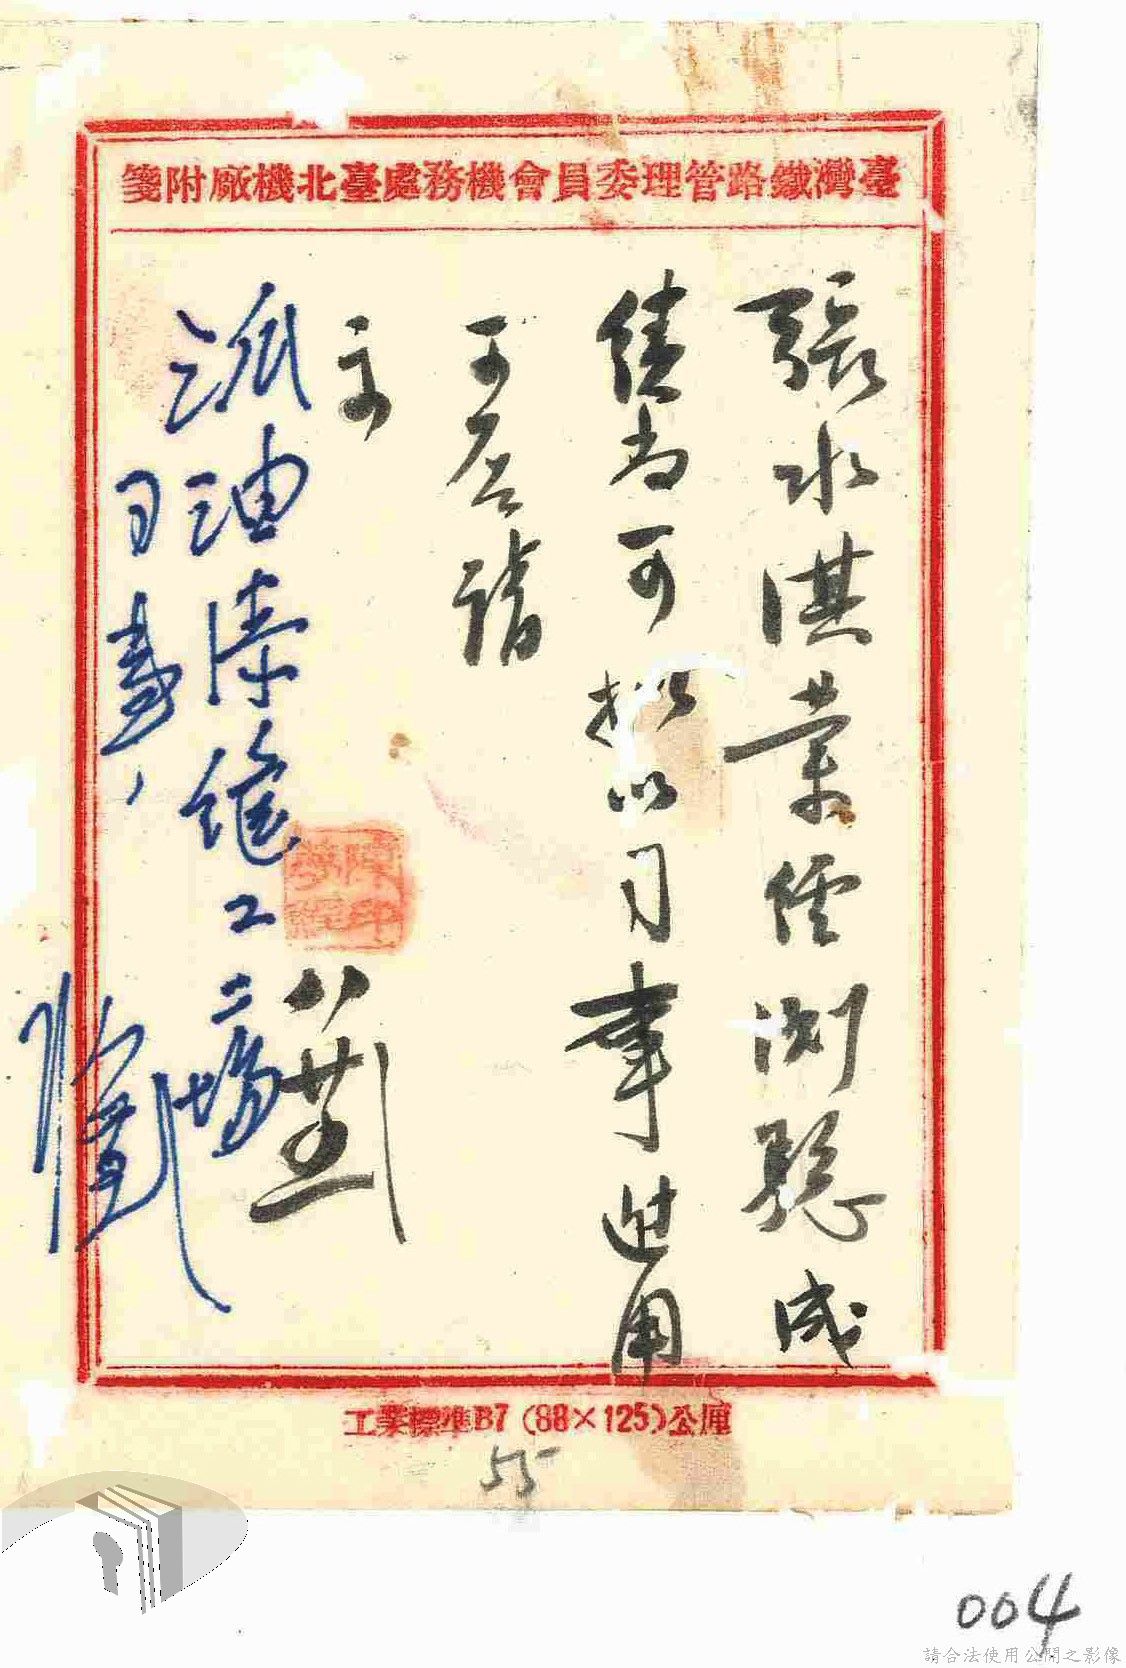 臺灣鐵路管理委員會機務處臺北機廠附箋
張水淇業經測驗成
績尚可擬以司事進用
可否請
示
八
派油漆繼工場
司事、
工業標準B7 (88×125)公厘
55
004
請合法使用公開之影像